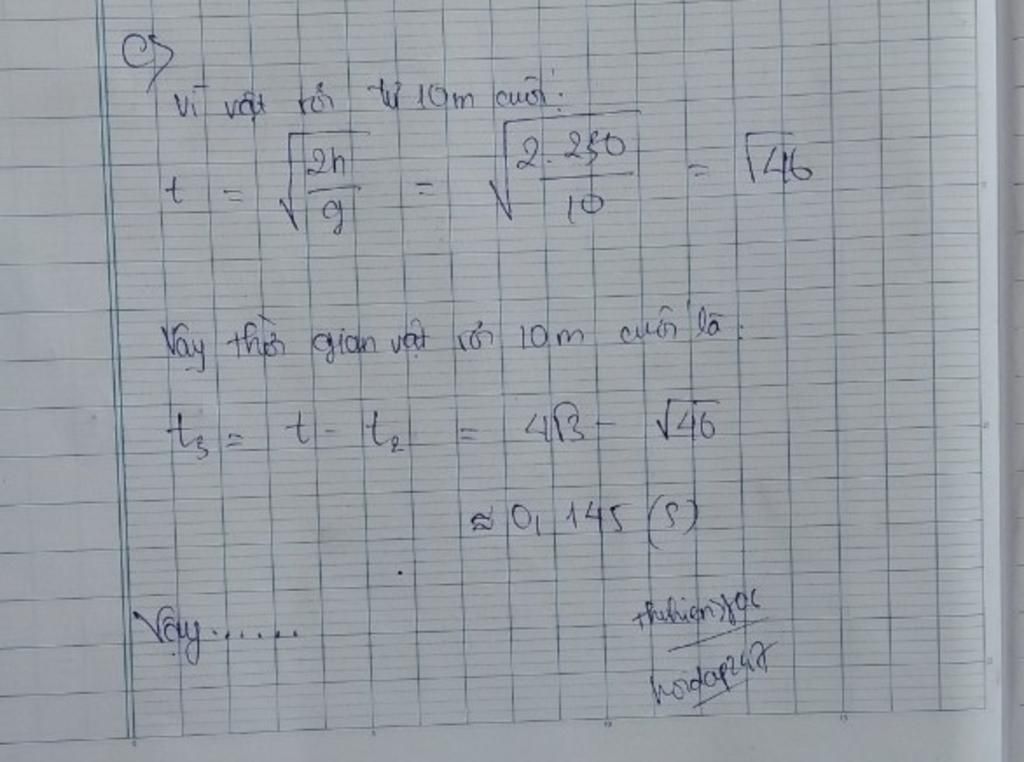 c)
Vì vật rơi từ 10m cuối:
t = √(2h/g) = √(2.230/10) = √46
Vậy thời gian vật rơi 10m cuối là:
t₃ = t - t₂ = 4√3 - √46
≈ 0,145 (s)
Vậy......
hoidap247